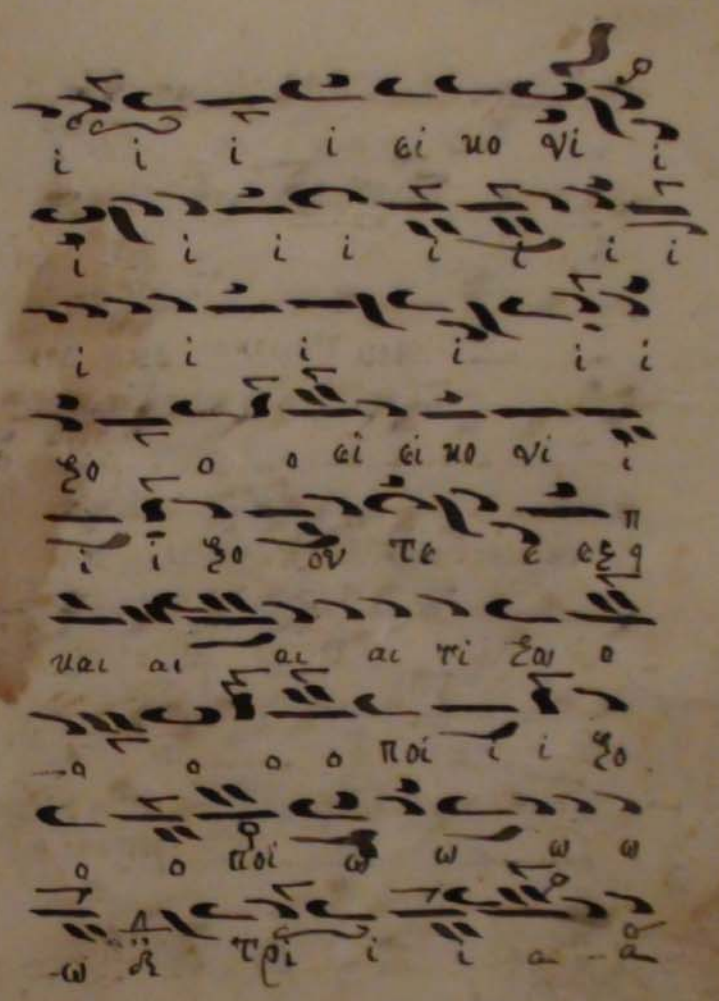 ι ι ι ι ει κο νι ι
ι ι ι ι ι ι ι ι
ι ι ι ι ι ι
ζο ο ο ει ει κο νι ι
ι ι ζο ον τε ε ες
και αι αι αι τι ζω ο
ο ο ο ο ποι ι ι ζο
ο ο ποι ω ω ω ω
ω τρι ι ι α α